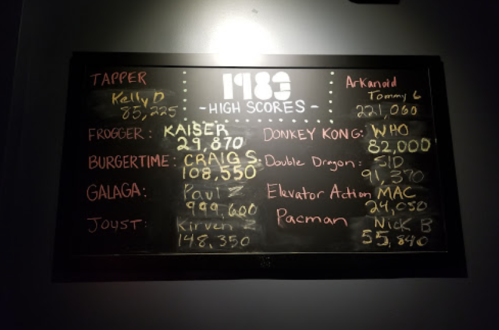 1983
- HIGH SCORES -
TAPPER
Kelly D
85,225
FROGGER: KAISER
29,870
BURGERTIME: CRAIG S.
108,550
GALAGA: Paul Z
999,600
JOUST: Kirven Z
148,350
Arkanoid
Tommy G
221,060
DONKEY KONG: WHO
82,000
Double Dragon: SID
91,370
Elevator Action MAC
24,050
Pacman Nick B
55,840